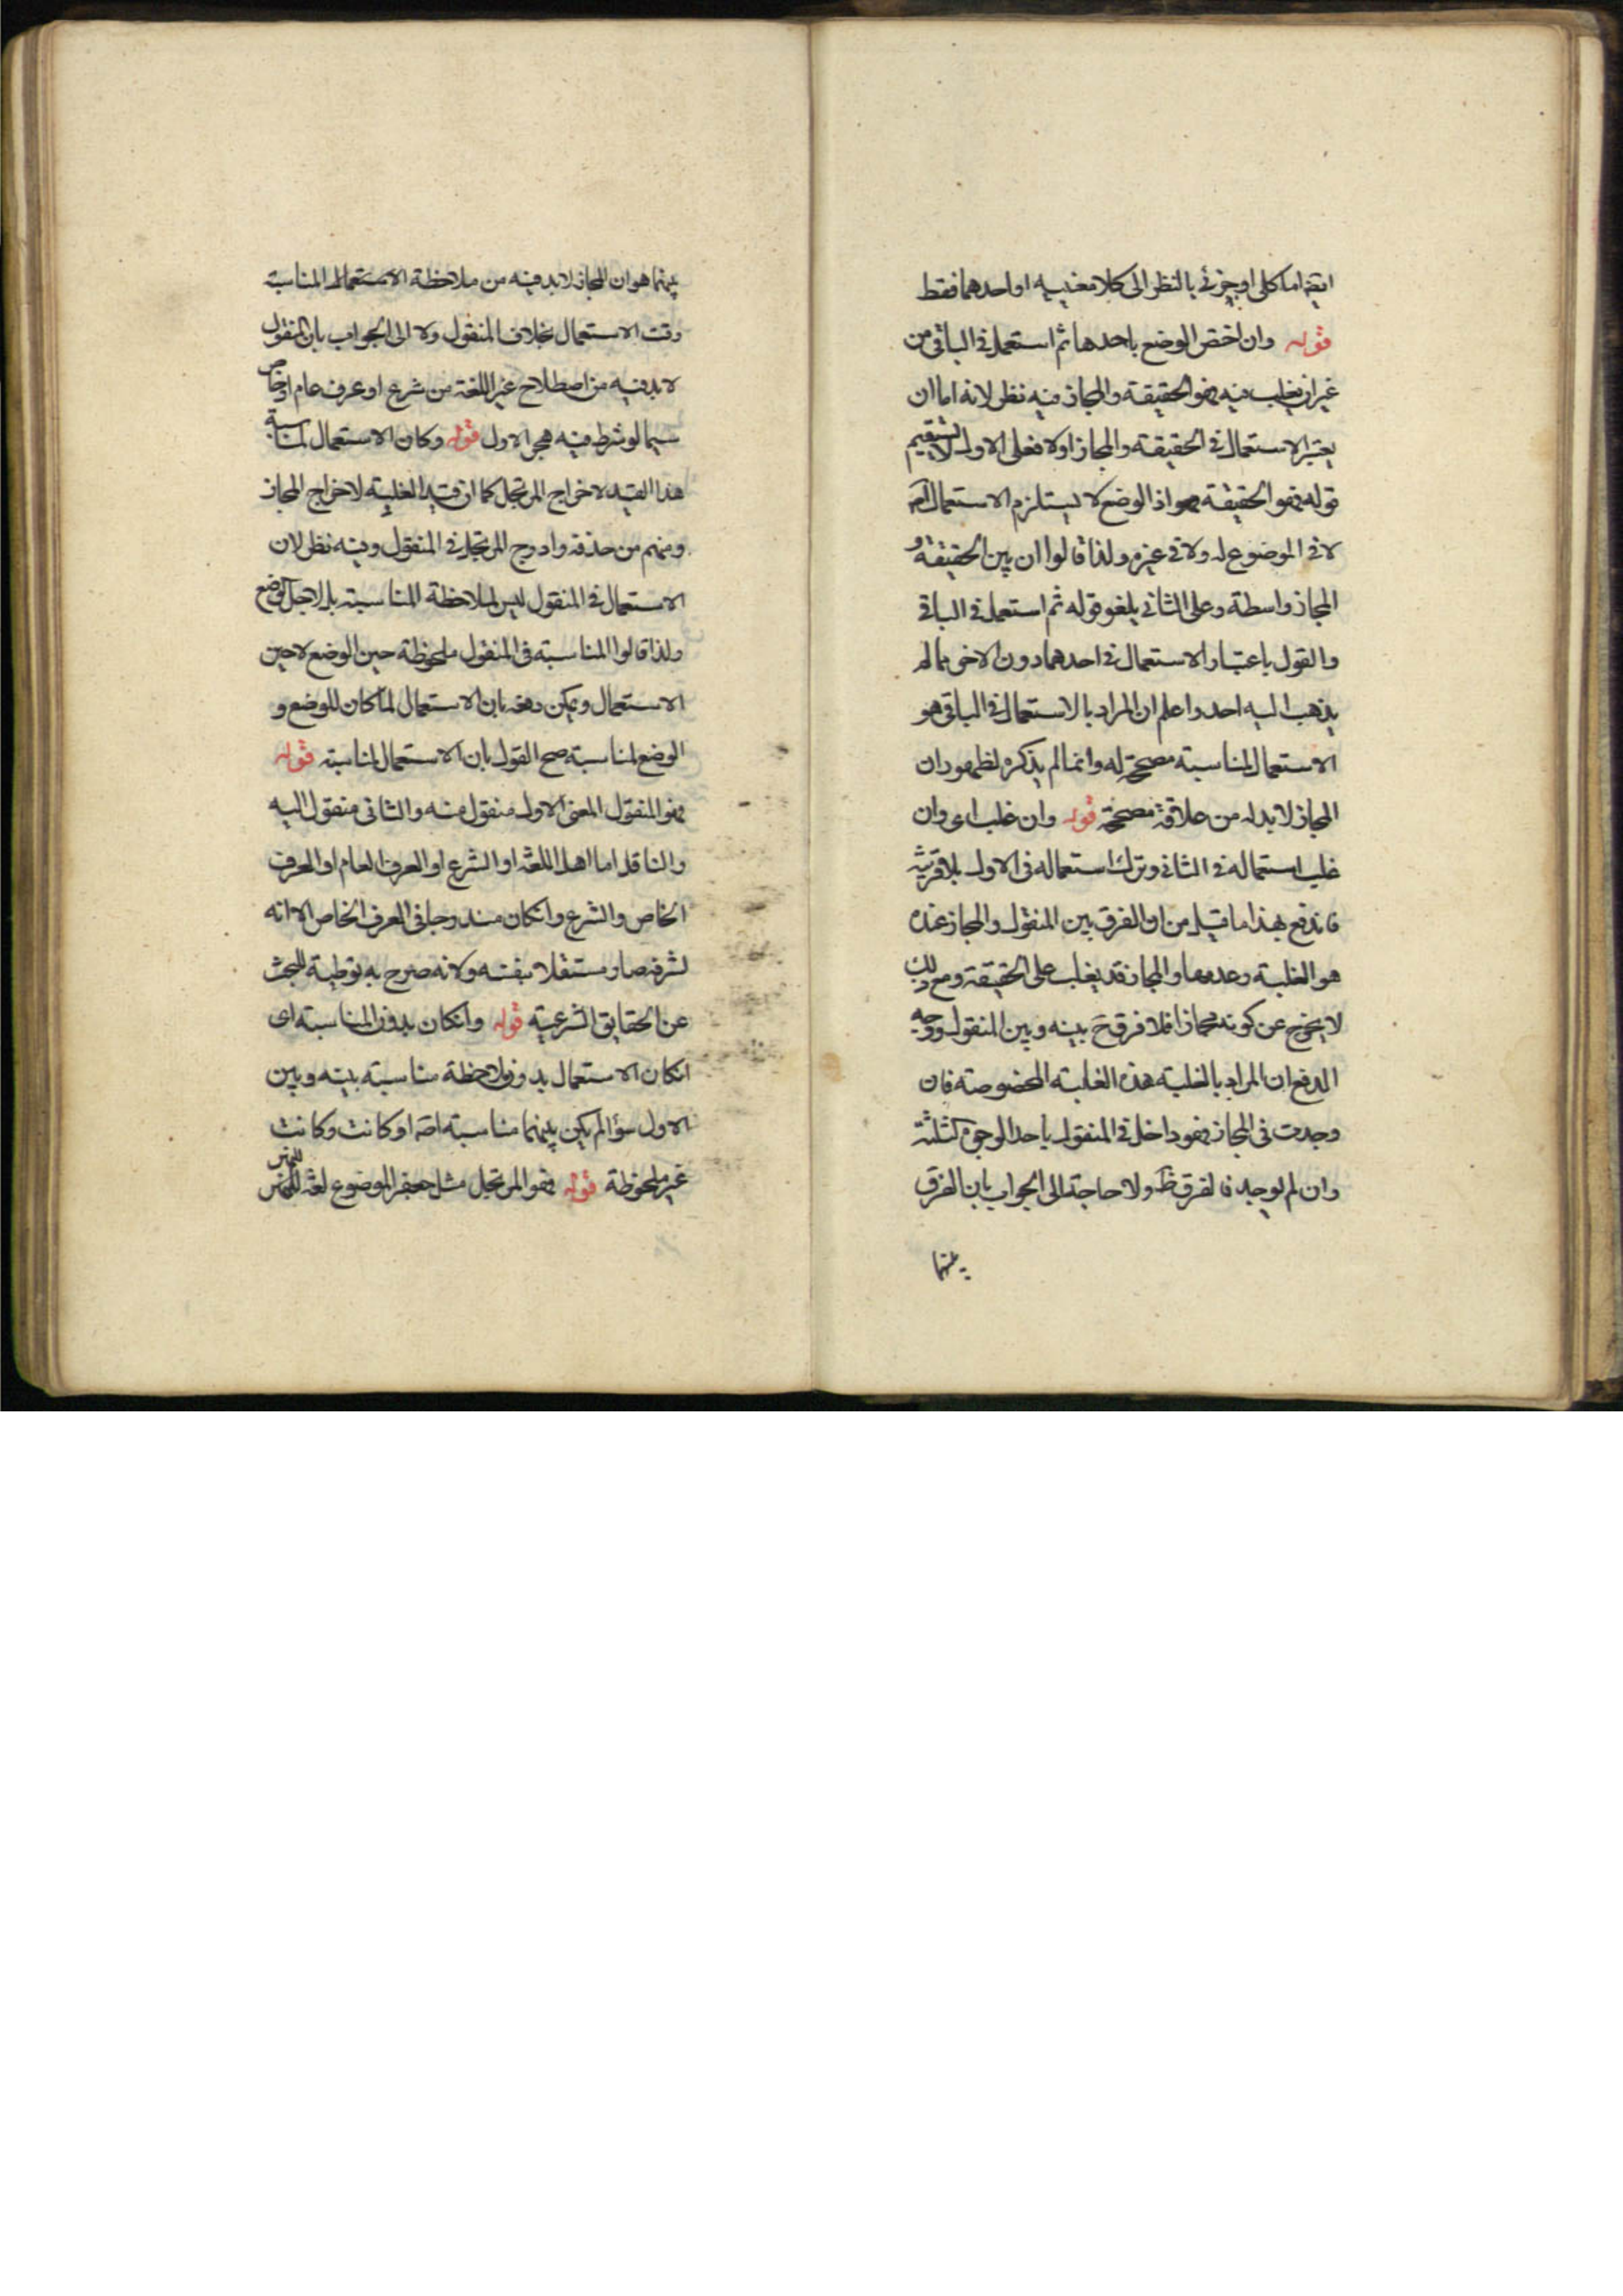 ايضا اما كلى او جزئى بالنظر الى كلا معنييه او احدهما فقط
قوله وان اختص الوضع باحدها ثم استعمل فى الباقى من
غير ان يغلب فيه فهو الحقيقة والمجاز فيه نظر لانه اما ان
يعتبر الاستعمال فى الحقيقة والمجاز اولا فعلى الاول لا يستقيم
قوله فهو الحقيقة اذ الوضع لا يستلزم الاستعمال
لا فى الموضوع له ولا فى غيره ولذا قالوا ان بين الحقيقة و
المجاز واسطة وعلى الثانى يلغو قوله ثم استعمل فى الباقى
والقول باعتبار الاستعمال فى احدهما دون الاخر مما لم
يذهب اليه احد واعلم ان المراد بالاستعمال فى الباقى هو
الاستعمال لمناسبة مصححة له وانما لم يذكره لظهور ان
المجاز لا بد له من علاقة مصححة قوله وان غلب اى وان
غلب استعماله فى الثانى وترك استعماله فى الاول بلا قرينة
فاندفع بهذا ما قيل من ان الفرق بين المنقول والمجاز عنده
هو الغلبة وعدمها والمجاز قد يغلب على الحقيقة ومع ذلك
لا يخرج عن كونه مجازا فلا فرق ح بينه وبين المنقول ووجه
الدفع ان المراد بالغلبة هذه الغلبة المخصوصة فان
وجدت فى المجاز فهو داخل فى المنقول باحد الوجوه الثلثة
وان لم يوجد فالفرق ظ ولا حاجة الى الجواب بان الفرق
بينهما
بينهما هو ان المجاز لا بد فيه من ملاحظة المناسبة
وقت الاستعمال بخلاف المنقول ولا الى الجواب بان المنقول
لا بد فيه من اصطلاح غير اللغة من شرع او عرف عام او خاص
سيما لو شرط فيه هجر الاول قوله وكان الاستعمال لمناسبة
هذا القيد لاخراج المرتجل كما ان قيد الغلبة لاخراج المجاز
ومنهم من حذفه وادرج المرتجل فى المنقول وفيه نظر لان
الاستعمال فى المنقول ليس لملاحظة المناسبة بل لاجل الوضع
ولذا قالوا المناسبة فى المنقول ملحوظة حين الوضع لا حين
الاستعمال ويمكن دفعه بان الاستعمال لما كان للوضع و
الوضع لمناسبة صح القول بان الاستعمال لمناسبة قوله
فهو المنقول المعنى الاول منقول منه والثانى منقول اليه
والناقل اما اهل اللغة او الشرع او العرف العام او العرف
الخاص والشرع وانكان مندرجا فى العرف الخاص الا انه
لشرفه صار مستقلا بنفسه ولانه صرح به توطية للبحث
عن الحقايق الشرعية قوله وانكان بدون المناسبة اى
انكان الاستعمال بدون ملاحظة مناسبة بينه وبين
الاول سواء لم يكن بينهما مناسبة اصلا او كانت وكانت
غير ملحوظة قوله فهو المرتجل مثل جعفر الموضوع لغة للنهر